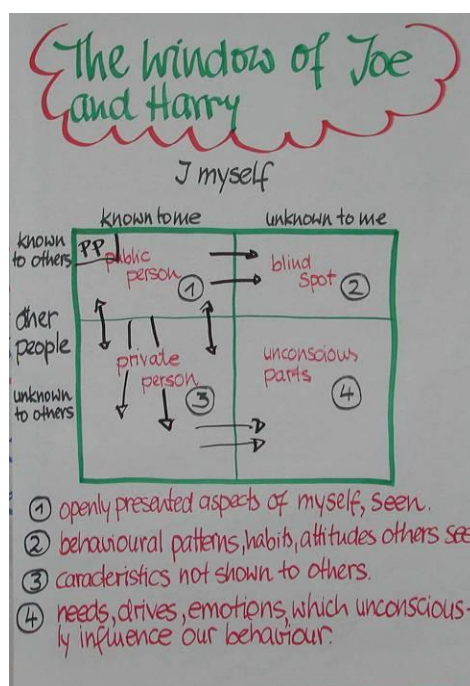 The Window of Joe
and Harry
I myself
known to me unknown to me
known
to others
PP
public
person ①
blind
spot ②
other
people
private
person ③
unconscious
parts
④
unknown
to others
① openly presented aspects of myself, seen.
② behavioural patterns, habits, attitudes others see
③ caracteristics not shown to others.
④ needs, drives, emotions, which unconscious-
ly influence our behaviour.